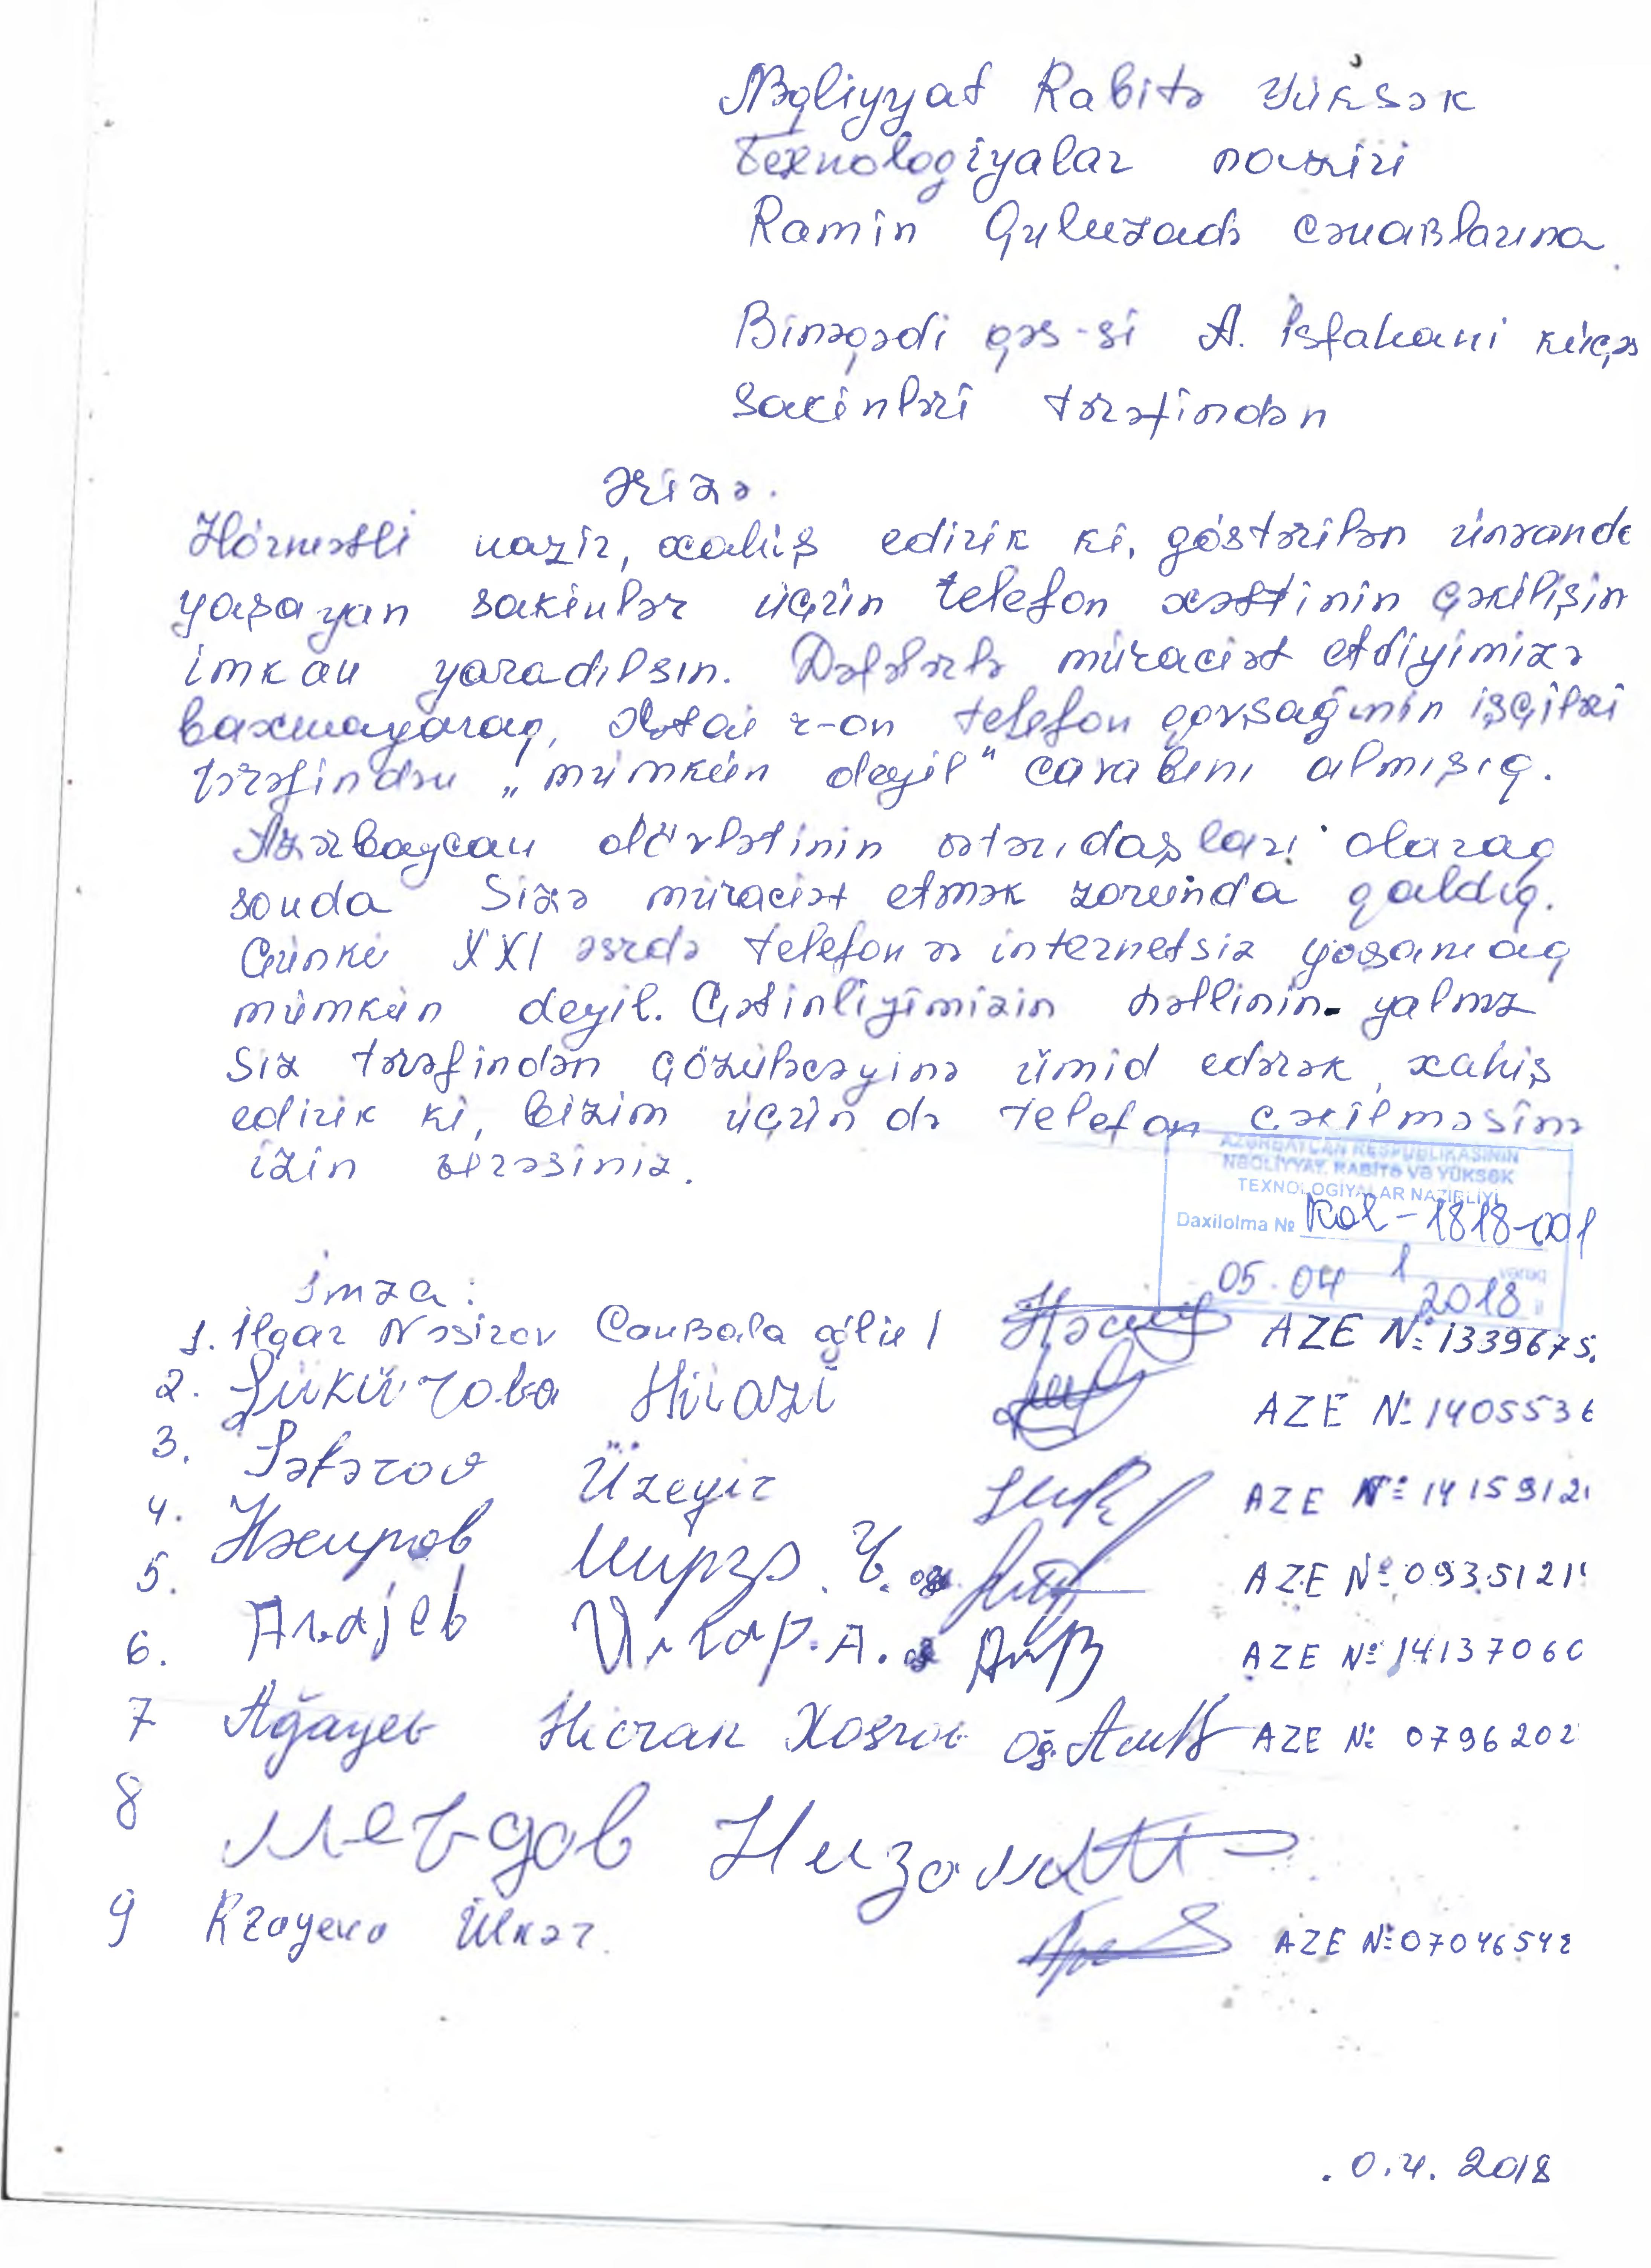 Nəqliyyat Rabitə Yüksək
Texnologiyalar naziri
Ramin Quluzadə cənablarına
Binəqədi qəs-si A. İsfahani küçəs
sakinləri tərəfindən
Ərizə.
Hörmətli nazir, xahiş edirik ki, göstərilən ünvanda
yaşayan sakinlər üçün telefon xəttinin çəkilişin
imkan yaradılsın. Dəfələrlə müraciət etdiyimizə
baxmayaraq, Xətai r-on telefon qovşağının işçiləri
tərəfindən „mümkün deyil" cavabını almışıq.
Azərbaycan dövlətinin vətəndaşları olaraq
sonda Sizə müraciət etmək zorunda qaldıq.
Çünki XXI əsrdə telefon və internetsiz yaşamaq
mümkün deyil. Çətinliyimizin həllinin yalnız
Siz tərəfindən çözüləcəyinə ümid edərək, xahiş
edirik ki, bizim üçün də telefon çəkilməsinə
izin verəsiniz.
AZƏRBAYCAN RESPUBLİKASININ
NƏQLİYYAT, RABİTƏ VƏ YÜKSƏK
TEXNOLOGİYALAR NAZİRLİYİ
Daxilolma № Kol-1818-001
1 vərəq
05.04 2018 il
İmza:
1. İlqar Nəsirov Canbala oğlu AZE № 1339675.
2. Şükürova Hicazi AZE № 1405536
3. Səfərov Üzeyir AZE № 1415912
4. Нәсиров Мирзә Ч. AZE № 0935121
5. А. AZE № 14137060
6.
7 Ağayev Hicran Xosrov oğ. AZE № 0796202
8 Низами
9 Rzayeva Ülkər AZE № 07046542
.0.4. 2018